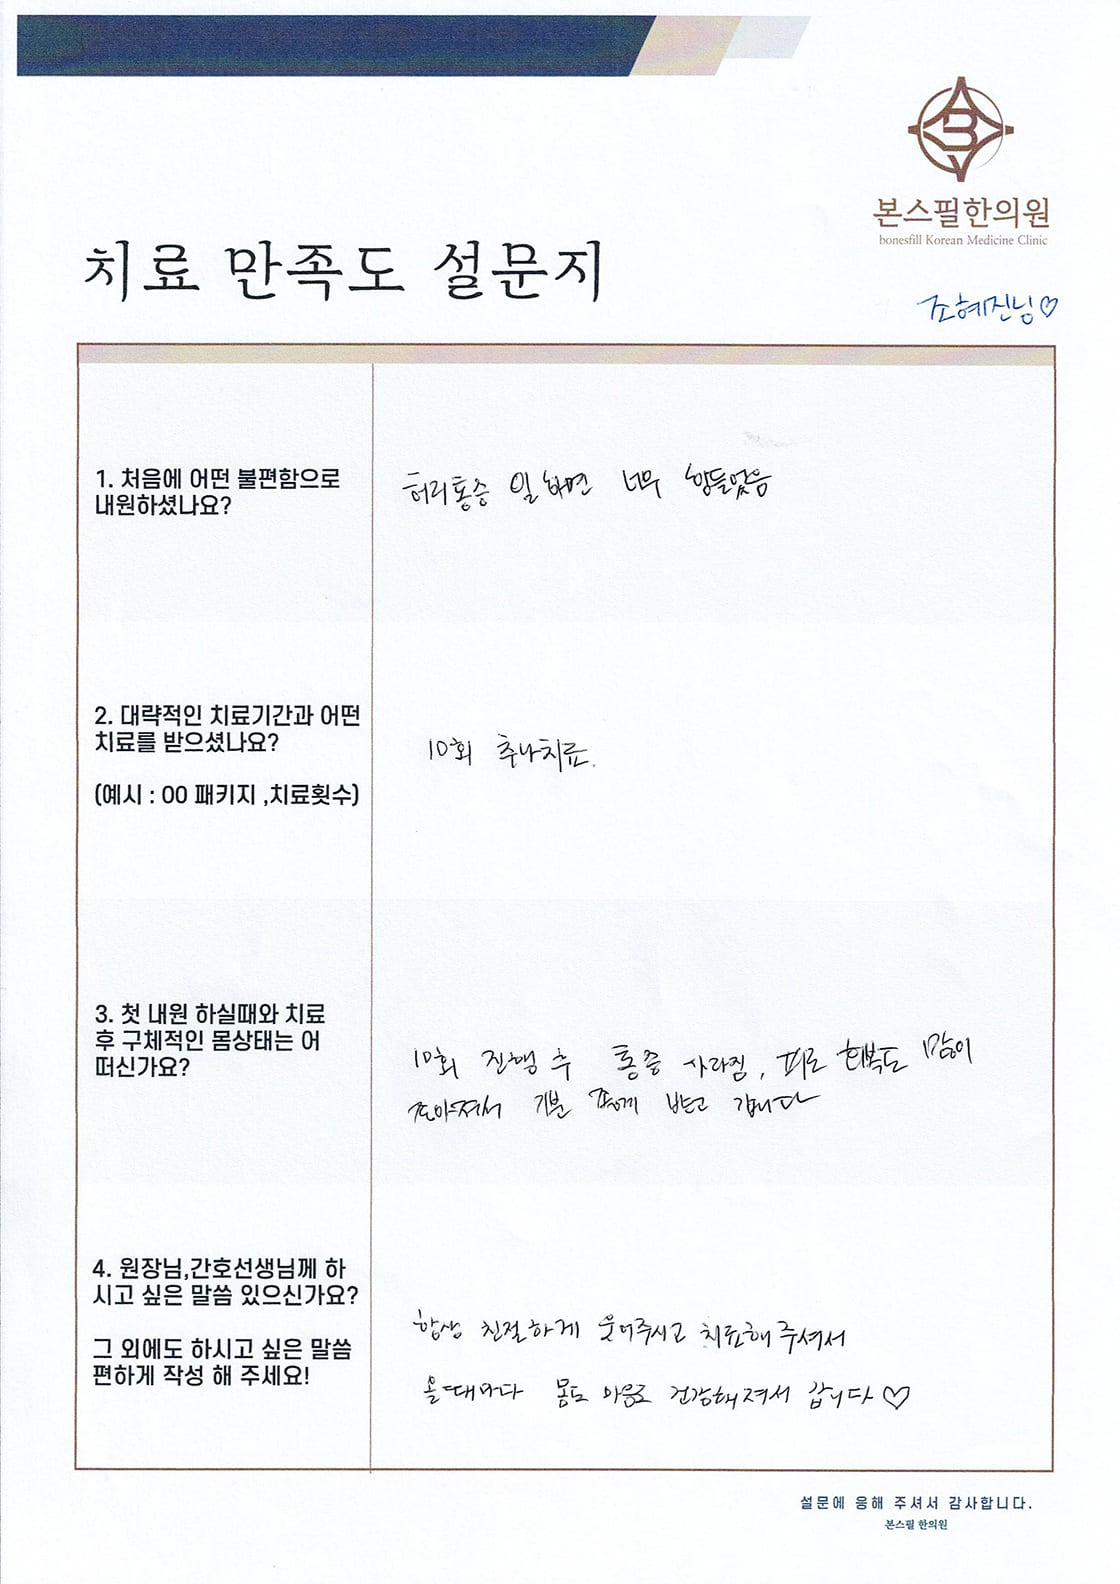 본스필한의원
bonesfill Korean Medicine Clinic
치료 만족도 설문지
조혜진님♡
1. 처음에 어떤 불편함으로
내원하셨나요?
허리통증 일하면 너무 힘들었음
2. 대략적인 치료기간과 어떤
치료를 받으셨나요?
(예시 : 00 패키지 ,치료횟수)
10회 추나치료.
3. 첫 내원 하실때와 치료
후 구체적인 몸상태는 어
떠신가요?
10회 진행 후 통증 사라짐, 피로 회복도 많이
조아져서 기분 좋게 받고 갑니다
4. 원장님,간호선생님께 하
시고 싶은 말씀 있으신가요?
그 외에도 하시고 싶은 말씀
편하게 작성 해 주세요!
항상 친절하게 웃어주시고 치료해 주셔서
올때마다 몸도 마음도 건강해져서 갑니다♡
설문에 응해 주셔서 감사합니다.
본스필 한의원